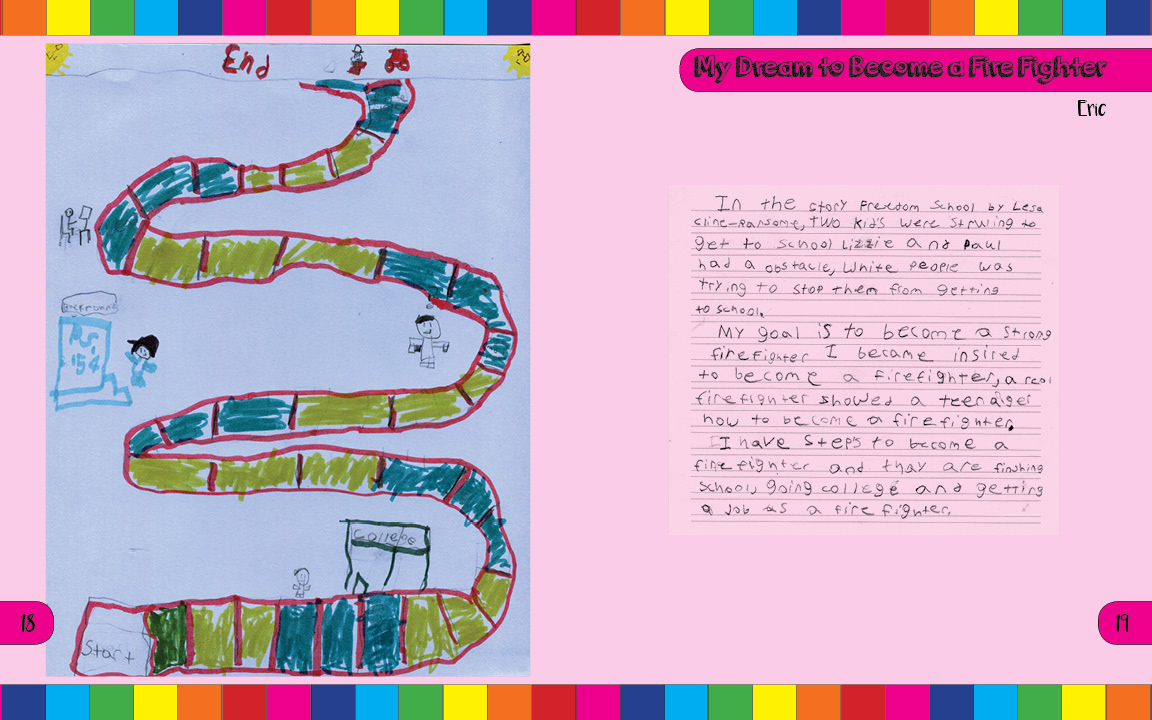 End
BackGround
PS
154
College
Start
18
My Dream to Become a Fire Fighter
Eric
In the story Freedom School by Lesa
Cline-Ransome, TWO Kid's were struling to
get to school Lizzie And Paul
had a obstacle, White People was
trying to stop them from getting
to school.
My goal is to become a strong
firefighter I became insired
to become a firefighter, a real
firefighter showed a teenager
how to become a firefighter.
I have steps to become a
firefighter and thay are finshing
school, going college and getting
a job as a firefighter.
19